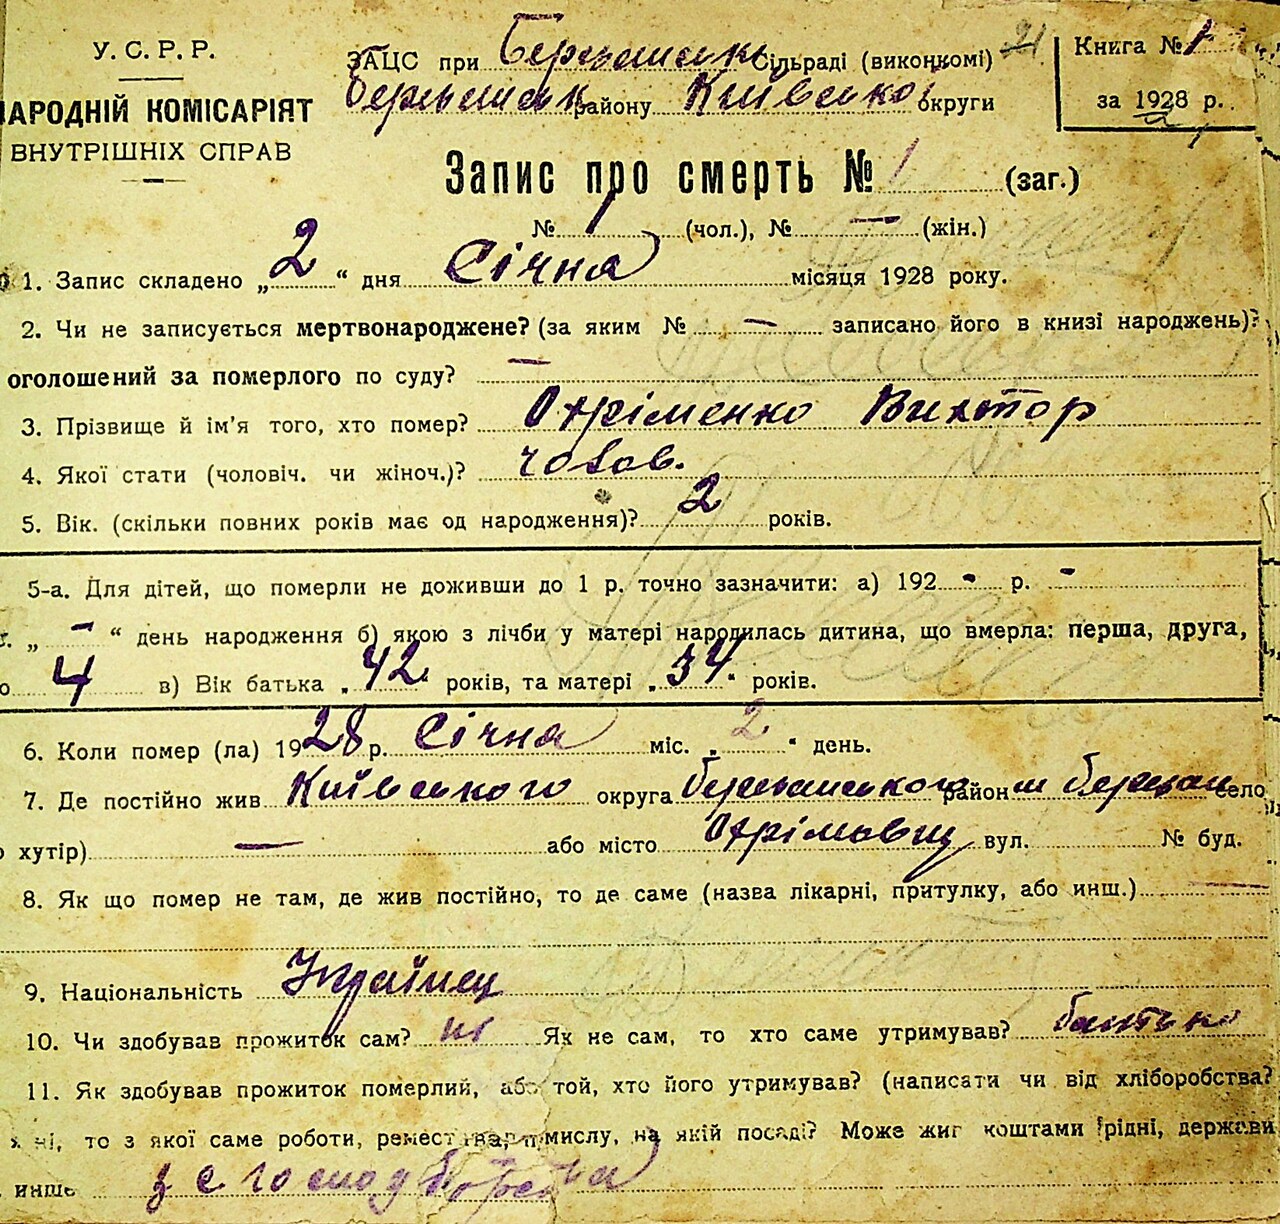 У. С. Р. Р.
НАРОДНІЙ КОМІСАРІЯТ
ВНУТРІШНІХ СПРАВ
ЗАЦС при Сільраді (виконкомі)
району Київської округи
Книга № 1
за 1928 р.
Запис про смерть № 1 (заг.)
№ 1 (чол.), № — (жін.)
1. Запис складено „2“ дня Січня місяця 1928 року.
2. Чи не записується мертвонароджене? (за яким № — записано його в книзі народжень)?
оголошений за померлого по суду? —
3. Прізвище й ім'я того, хто помер? Охріменко Виктор
4. Якої стати (чоловіч. чи жіноч.)? чолов.
5. Вік. (скільки повних років має од народження)? 2 років.
5-а. Для дітей, що померли не доживши до 1 р. точно зазначити: а) 192 - р. -
„ — “ день народження б) якою з лічби у матері народилась дитина, що вмерла: перша, друга,
4 в) Вік батька „42“ років, та матері „34“ років.
6. Коли помер (ла) 1928 р. Січня міс. „2“ день.
7. Де постійно жив Київського округа район село
хутір) — або місто вул. № буд.
8. Як що помер не там, де жив постійно, то де саме (назва лікарні, притулку, або инш.) —
9. Національність Українец
10. Чи здобував прожиток сам? ні Як не сам, то хто саме утримував? батько
11. Як здобував прожиток померлий, або той, хто його утримував? (написати чи від хліборобства?
ні, то з якої саме роботи, ремества, промислу, на якій посаді? Може жив коштами рідні, держави
инше з с. господарства